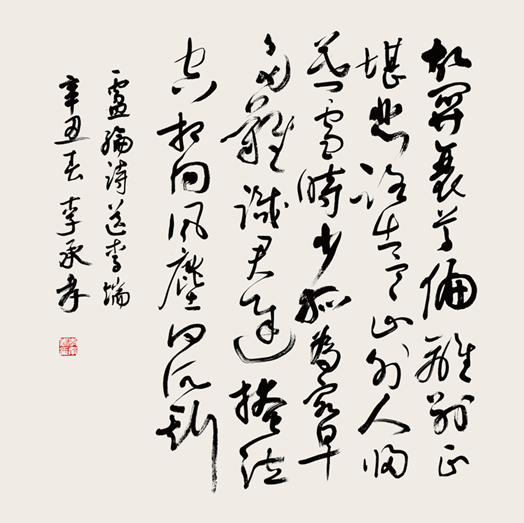 故關衰草徧離別正
堪悲路出寒云外人歸
暮雪時少孤為客早
多難識君遲掩泣
空相向風塵何所期
盧綸詩送李端
辛丑春李承孝